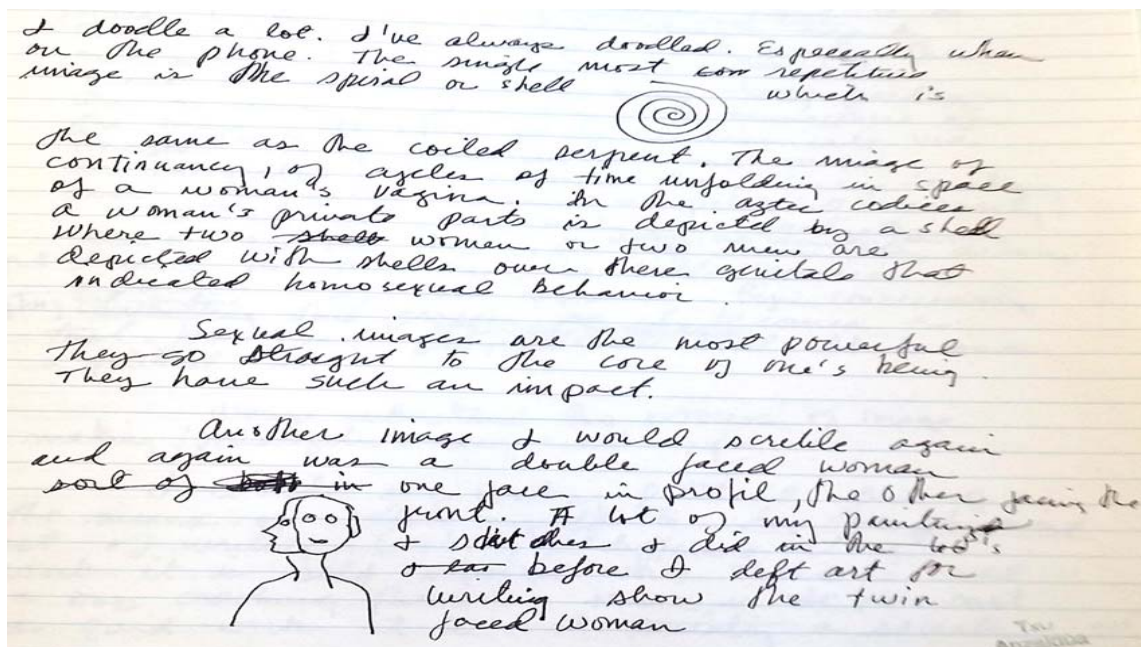 I doodle a lot. I've always doodled. Especially when
on the phone. The single most com repetitive
image is the spiral or shell which is
the same as the coiled serpent. The image of
continuancy, of cycles of time unfolding in space
of a woman's vagina. In the aztec codices
a woman's private parts is depicted by a shell
where two shells women or two men are
depicted with shells over there genitals that
indicated homosexual behavior.
Sexual images are the most powerful
They go straight to the core of one's being.
They have such an impact.
Another image I would scrible again
and again was a double faced woman
sort of both in one face in profil, the other facing the
front. A lot of my paintings
& sketches I did in the 60's
before I left art for
writing show the twin
faced woman